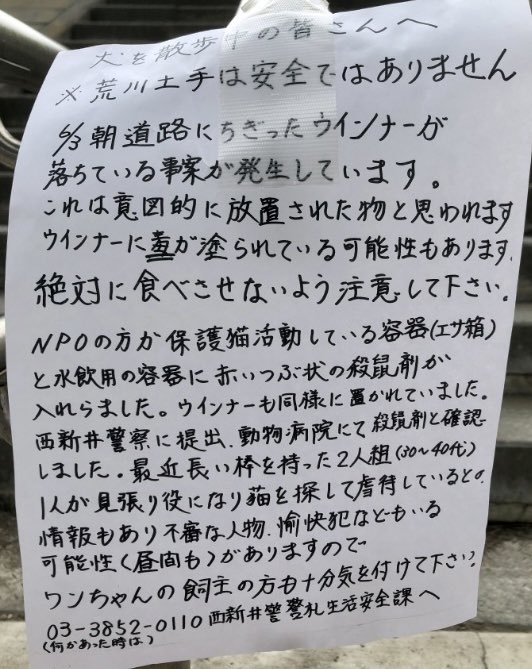 犬を散歩中の皆さんへ
※荒川土手は安全ではありません
6/3朝道路にちぎったウインナーが
落ちている事案が発生しています。
これは意図的に放置された物と思われます
ウインナーに毒が塗られている可能性もあります。
絶対に食べさせないよう注意して下さい。
NPOの方が保護猫活動している容器(エサ箱)
と水飲用の容器に赤いつぶ状の殺鼠剤が
入れらました。ウインナーも同様に置かれていました。
西新井警察に提出、動物病院にて殺鼠剤と確認
しました。最近長い棒を持った2人組(30〜40代)
1人が見張り役になり猫を探して虐待しているとの
情報もあり不審な人物、愉快犯などもいる
可能性(昼間も)がありますので
ワンちゃんの飼主の方も十分気を付けて下さい。
03-3852-0110西新井警察生活安全課へ
(何かあった時は)